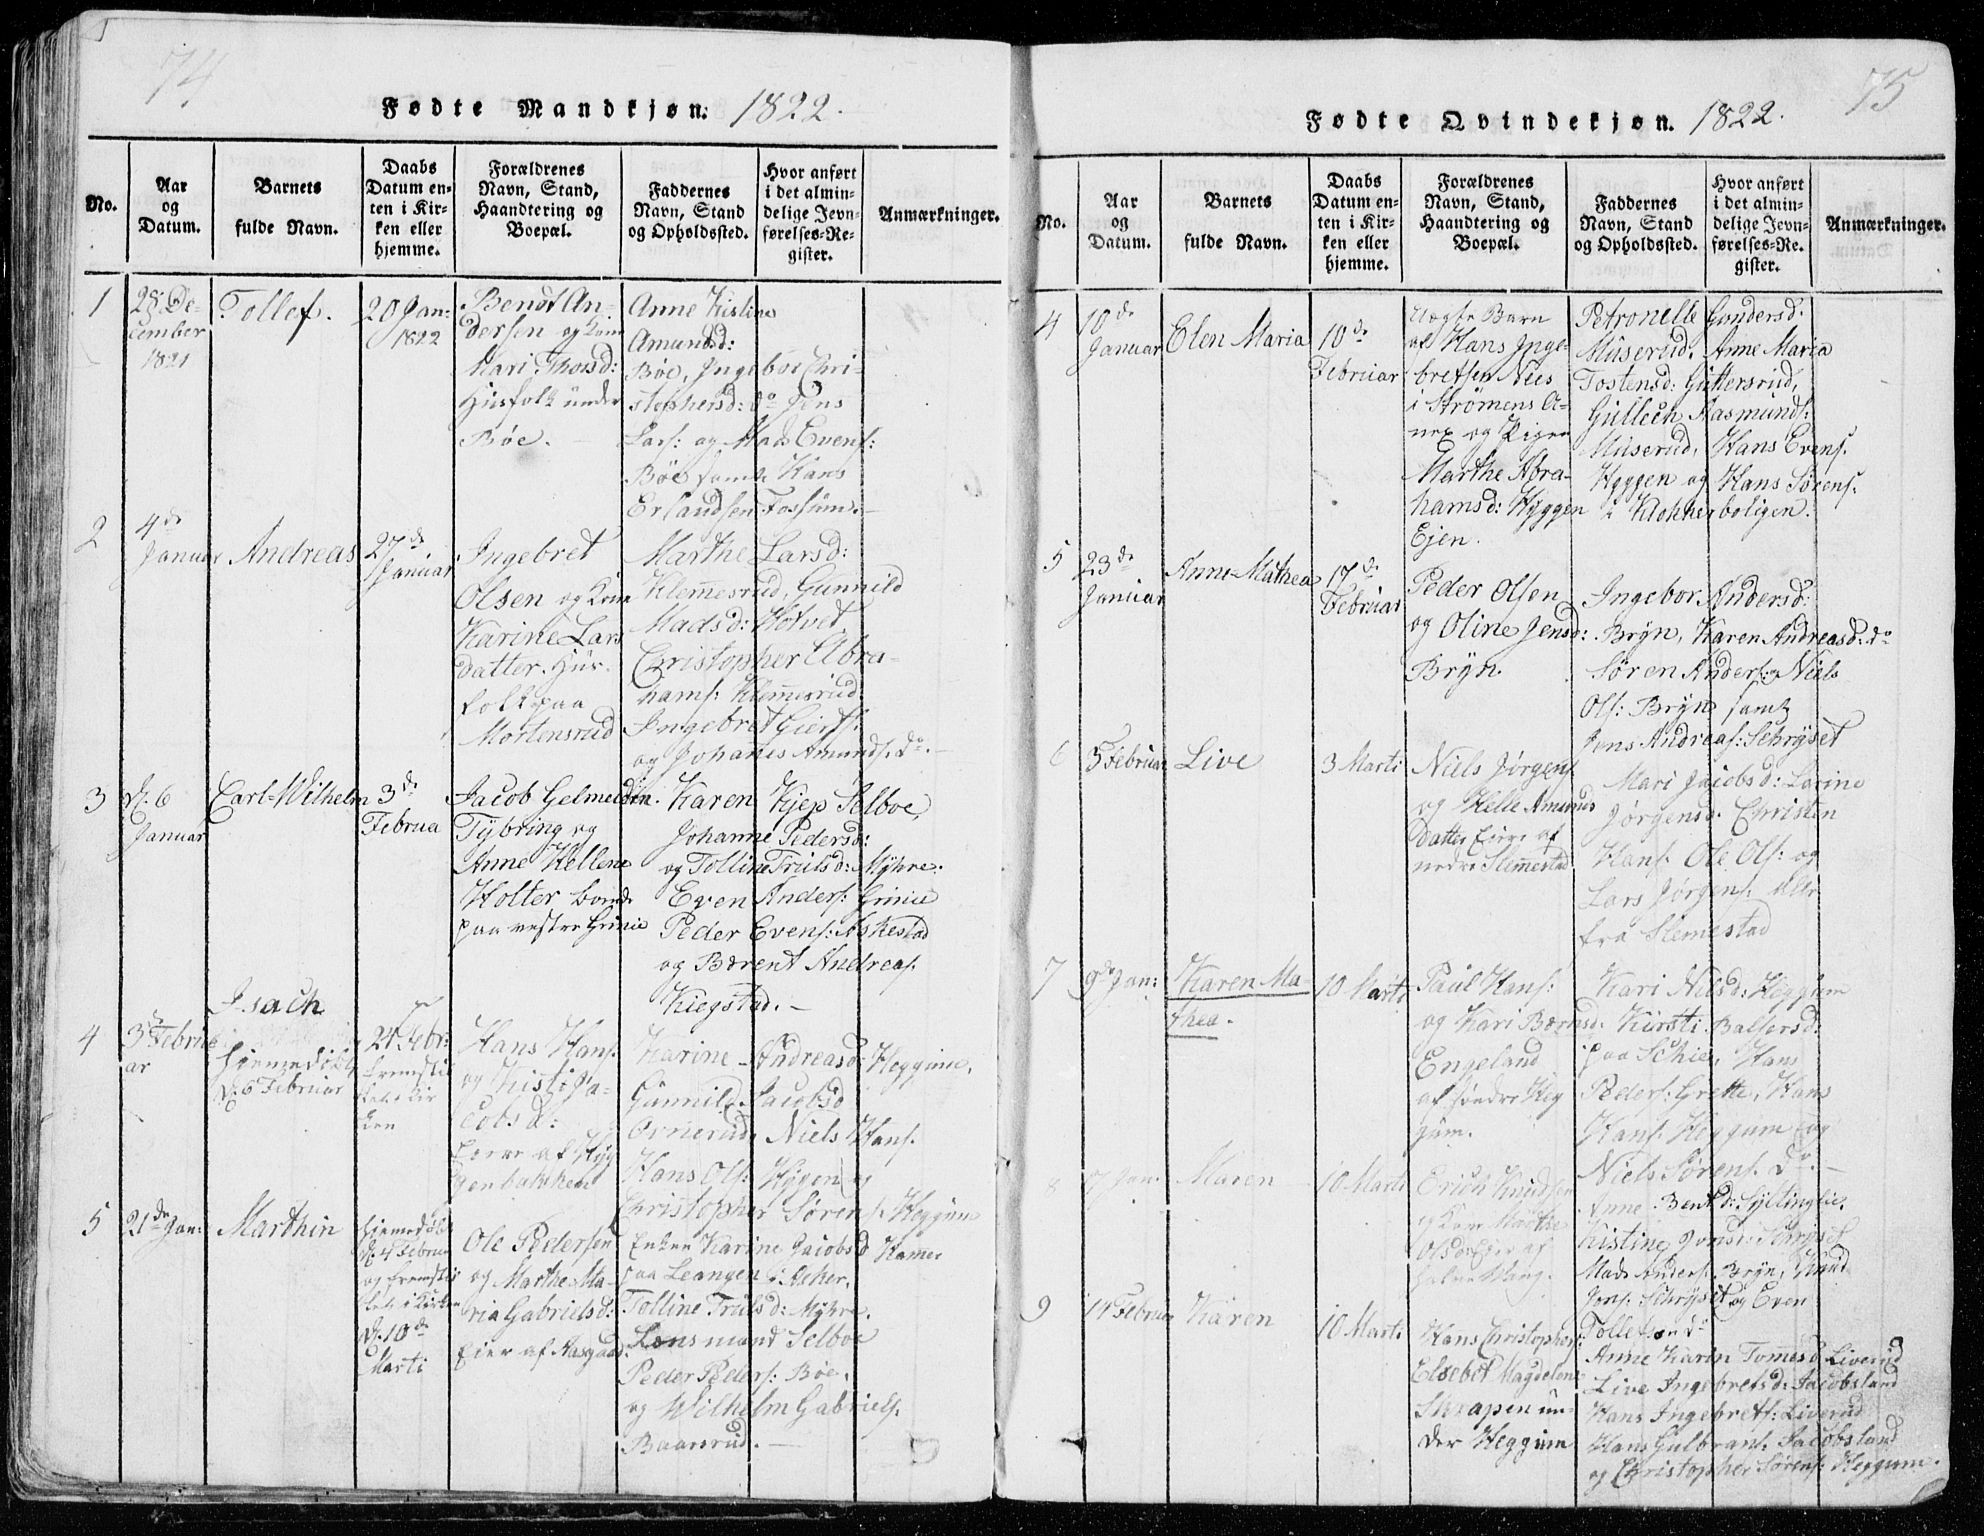 74
Fødte Mandkjøn: 1822.
No.
Aar
og
Datum.
Barnets
fulde Navn.
Daabs
Datum en-
ten i Kir-
ken eller
hjemme.
Forældrenes
Navn, Stand,
Haandtering og
Boepæl.
Faddernes
Navn, Stand
og Opholdssted.
Hvor anført
i det almin-
delige Jevn-
førelses-Re-
gister.
Anmærkninger.
1
28 De-
cember
1821
Tollef.
20 Jan:
1822
Bendt An-
dersen og Kone
Mari Thorsd:
Husfolk under
Bøe.
Anne Kistine
Amundsd:
Bøe, Ingeboe Chri-
stophersd: do Jens
Lars: og Mads Evens:
Bøe samt Hans
Erlandsen Fossum.
2
4de
Januar
Andreas
27de
Januar
Ingebret
Olsen og Kone
Karine Lars
datter. Hus-
folk paa
Mortensrud
Marthe Larsd:
Klemmesrud, Gunnild
Madsd: Hotvet,
Christopher Abra-
hams: Klemmesrud
Ingebret Gierts:
og Johanes Amunds: do.
3
D. 6
Januar
Carl-Wilhelm
3de
Februa
Jacob Gelmeiden
Tybring og
Anne Hellene
Holter boende
paa vestre Grinie
Karen Kjep Selboe,
Johanne Pedersd:
og Tolline Trulsd: Myhre.
Even Anders: Grinie
Peder Evens: Askestad
og Bærent Andreas.
Kiegstad.
4
3 Febru
ar
Isach
hiemedøbt
D. 6 Februar
24 Febr:
fremsti
ken
Hans Hans.
og Kisti Ja-
cobsd:
Eiere af Hyg
genbakken
Karine Andreasd: Heggum,
Gunnild Jacobsd
Ornerud, Niels Hans.
Hans Ols: Hygen og
Christopher Sørens. Heggum
5
21de Jan:
Marthin
hiemedøbt
D. 4 Februar
og fremstil
let i Kirken
D. 10de
Marti
Ole Pedersen
og Marthe Ma-
ria Gabrielsd:
Eier af Aasgaard.
Enken Karine Jacobsd Hamer
paa Leangen i Asker,
Tolline Trulsd: Myhre.
Lensmand Selboe
Peder Peders: Bøe.
og Wilhelm Gabriels.
Baarsrud.
75
Fødte Qvindekjøn. 1822.
No.
Aar
og
Datum.
Barnets
fulde Navn.
Daabs
Datum en-
ten i Kir-
ken eller
hjemme.
Forældrenes
Navn, Stand,
Haandtering og
Boepæl.
Faddernes
Navn, Stand
og Opholdssted.
Hvor anført
i det almin-
delige Jevn-
førelses-Re-
gister.
Anmærkninger.
4
10de
Januar
Elen Maria
10de
Februar
Uægte Barn
af Hans Inge-
bretsen Nees
i Strømens A-
nex og Pigen
Marthe Abra-
hamsd: Hyggen
Ejen.
Petronelle Gundersd:
Muserud, Anne Maria
Tostensd: Guttersrud,
Gullech Aasmunds:
Muserud, Hans Evens.
Hyggen og Hans Sørens.
i Klokkerboligen.
5
23de
Januar
Anne-Mathea
17de
Februar
Peder Olsen
og Oline Jensd:
Bryn.
Ingebor Andersd:
Bryn, Karen Andreasd: do
Søren Anders: Niels
Ols: Bryn samt
Jens Andreas: Schryset
6
5 Februar
Live
3 Marti
Niels Jørgens.
og Helle Amunds
datter Eiere af
nedre Slemmestad
Mari Jacobsd: Larine
Jørgensd: Christen
Hans. Ole Ols: og
Lars Jørgens. alle
fra Slemestad
7
9de Jan:
Karen Ma-
thea.
10 Marti
Paul Hans:
og Kari Bærntsd:
Engeland
af søndre Heg
gum.
Kari Nilsd: Heggum
Kirsti Baltsersd:
paa Schie, Hans
Peders: Grette, Hans
Hans. Heggum og
Niels Sørens. do.
8
7 Jan:
Maren
10 Marti
Erich Knudsen
og Kone Marthe
Olsd: Eier af
Anne Bentsd: Syltinglie,
Kistine Jonsd: Schryset
Mads Anders. Bryn, Knud
Jons: Schryset og Even
Tollefsen do
9
14 Februar
Karen
10 Marti
Hans Christophers:
Elsebet Magdelene
Skrapen un-
der Heggum
Anne Karin Tomesd Liverud
Live Ingebretsd: Jacobsland
Hans Ingebrets: Liverud
Hans Gulbrans. Jacobsland
og Christopher Sørens: Heggum.